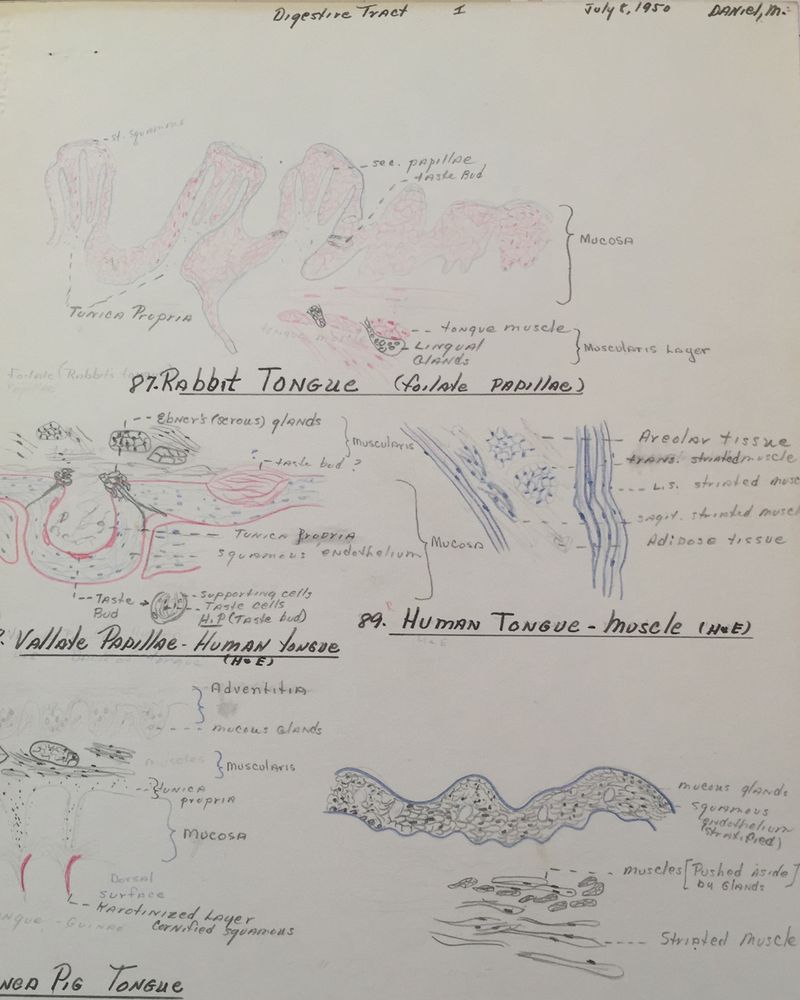 Digestive Tract I July 8, 1950 Daniel, M.
st. squamous
sec. papillae
taste Bud
Mucosa
Tunica Propria
tongue muscle
Lingual
Glands
Muscularis Layer
87. Rabbit Tongue (foilate papillae)
Ebner's (serous) glands
muscularis
taste bud ?
P
Tunica Propria
squamous endothelium
Mucosa
Taste
Bud
supporting cells
Taste cells
H.P (Taste bud)
Vallate Papillae - Human Tongue
(H&E)
Areolar tissue
trans. striated muscle
L.S. striated musc
sagit. striated muscl
Adipose tissue
89. Human Tongue - muscle (H&E)
Adventitia
mucous glands
muscles
muscularis
Tunica
propria
Mucosa
Dorsal
surface
Karotinized Layer
Cornified squamous
nea Pig Tongue
mucous glands
squamous
endothelium
(stratified)
muscles [Pushed Aside]
by Glands
Striated Muscle